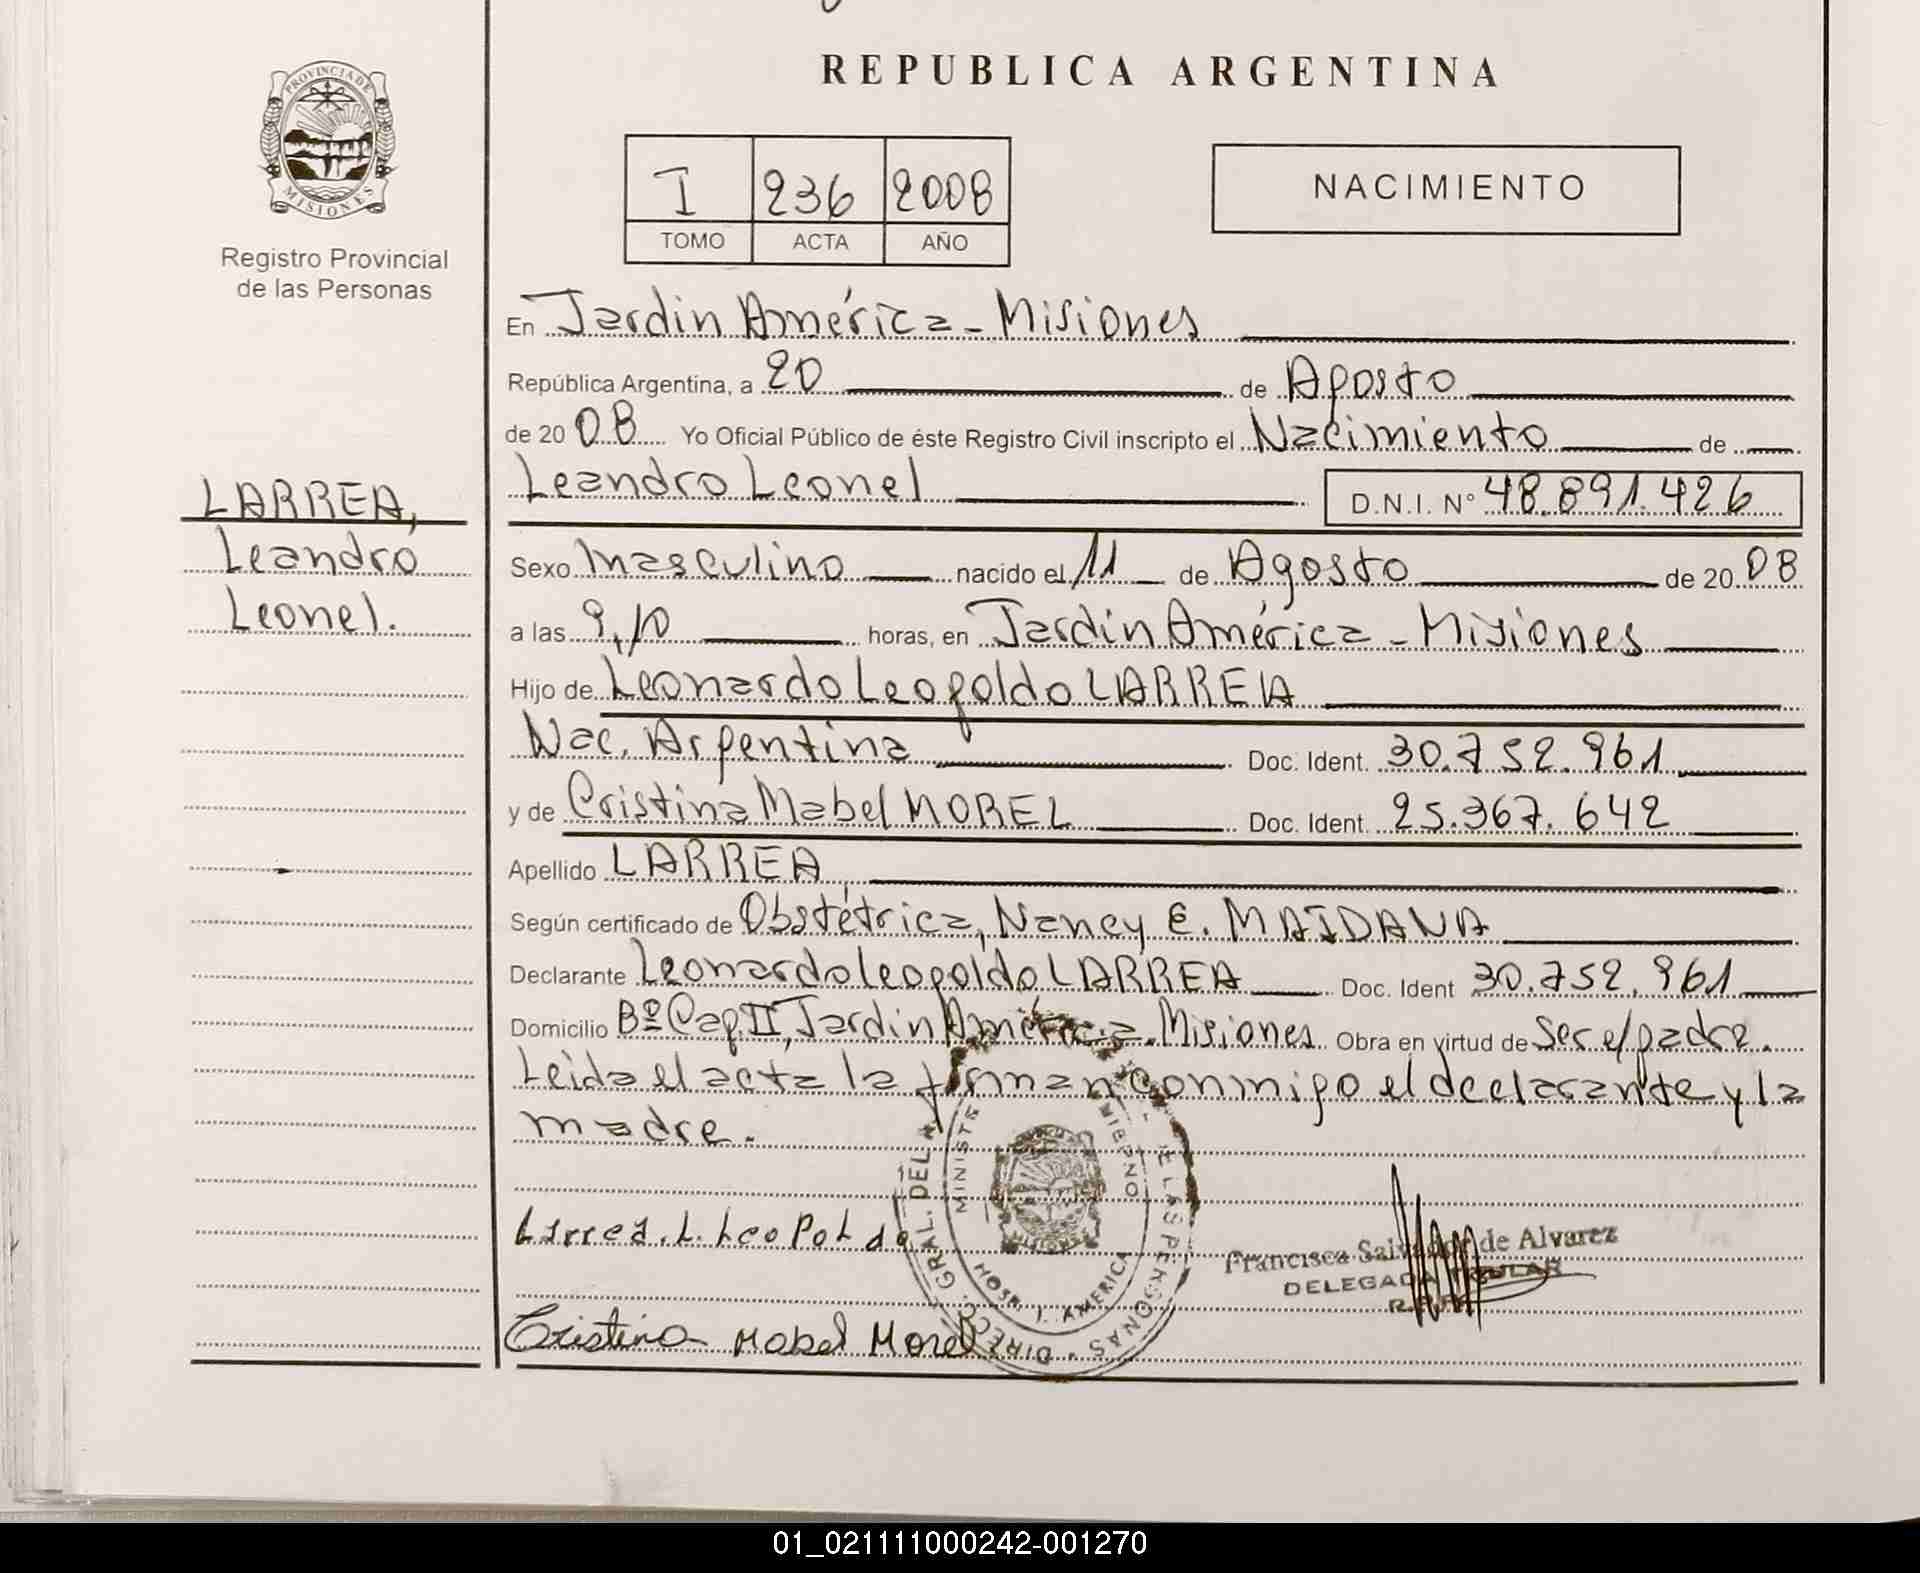 REPUBLICA ARGENTINA
PROVINCIA DE
MISIONES
Registro Provincial
de las Personas
I 236 2008
TOMO ACTA AÑO
NACIMIENTO
LARREA,
Leandro
Leonel.
En Jardin América - Misiones
República Argentina, a 20 de Agosto
de 2008 Yo Oficial Público de éste Registro Civil inscripto el Nacimiento de
Leandro Leonel D.N.I. Nº 48.891.426
Sexo Masculino nacido el 11 de Agosto de 2008
a las 9,10 horas, en Jardín América - Misiones
Hijo de Leonardo Leopoldo LARREA
Nac. Argentina Doc. Ident. 30.752.961
y de Cristina Mabel MOREL Doc. Ident. 25.367.642
Apellido LARREA
Según certificado de Obstétrica, Nancy E. MAIDANA
Declarante Leonardo Leopoldo LARREA Doc. Ident 30.752.961
Domicilio Bº Cap. II, Jardín América. Misiones Obra en virtud de Ser el padre.
Leida el acta la firman conmigo el declarante y la
madre.
Larrea. L. Leopoldo
Francisca Salvador de Alvarez
DELEGADA TITULAR
R.P.P.
Cristina Mabel Morel
DIREC. GRAL. DEL DE LAS PERSONAS
HOSP. J. AMERICA
01_021111000242-001270